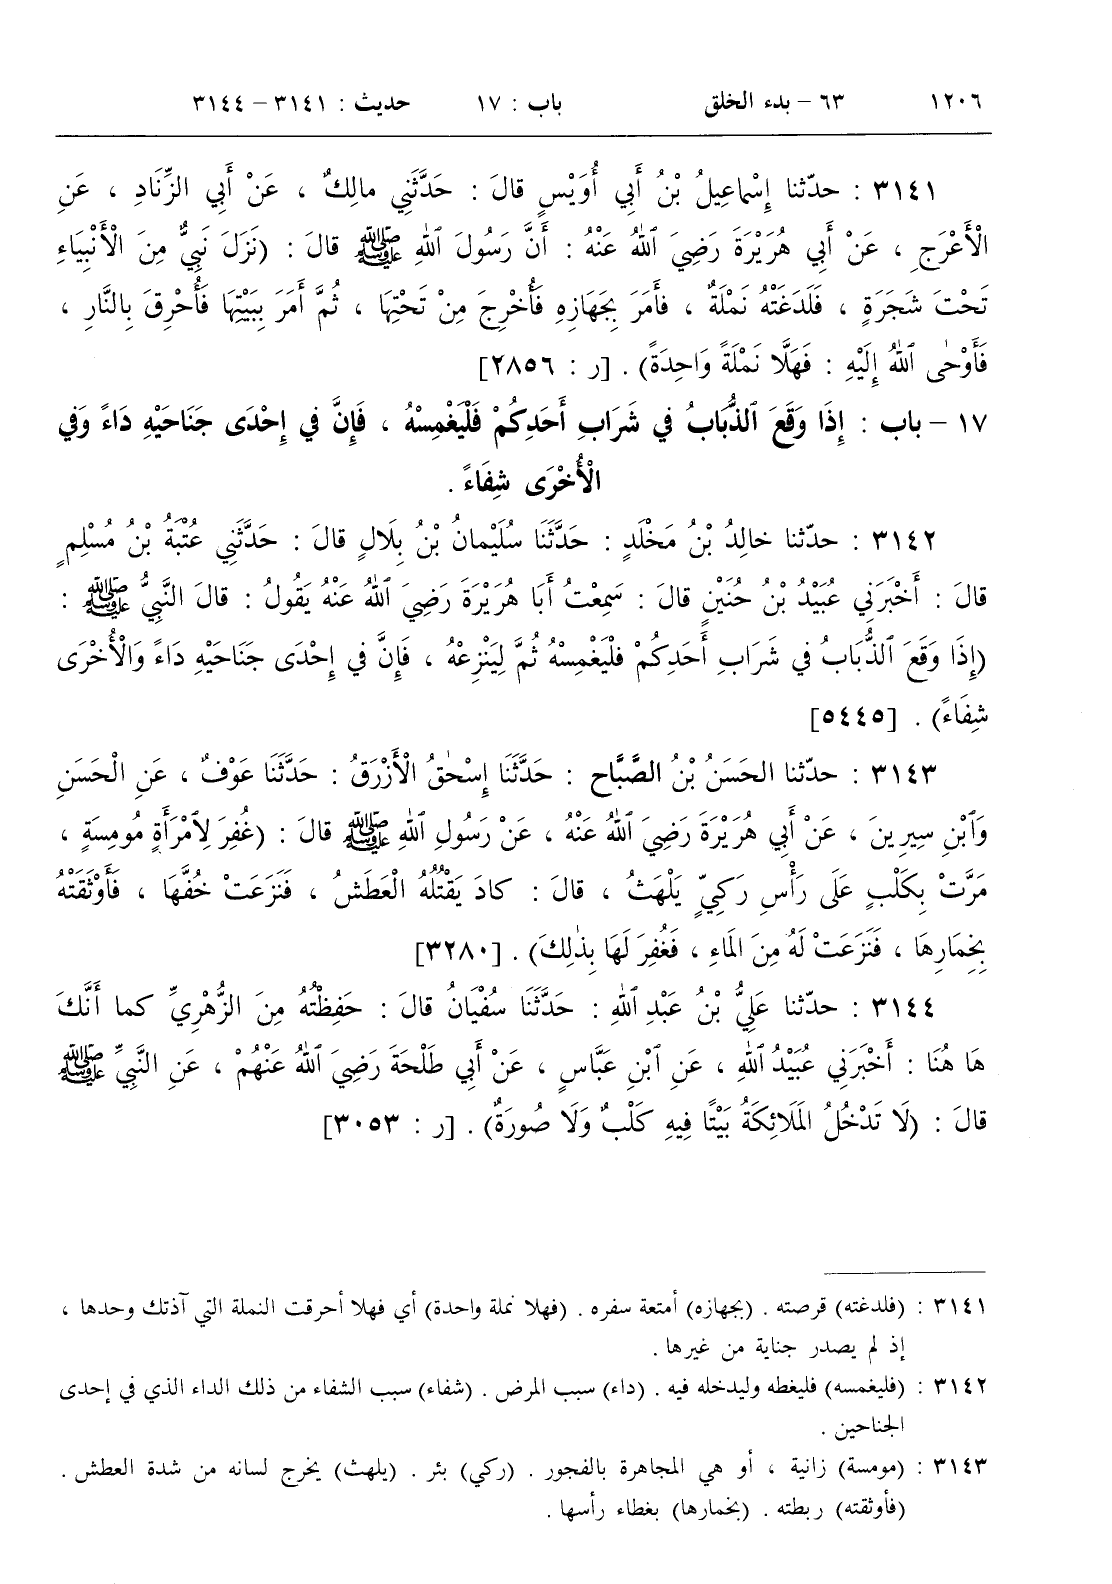 ١٢٠٦ ٦٣ – بدء الخلق باب : ١٧ حديث : ٣١٤١ – ٣١٤٤
٣١٤١ : حدّثنا إِسْماعِيلُ بْنُ أَبِي أُوَيْسٍ قالَ : حَدَّثَنِي مالِكٌ ، عَنْ أَبِي الزِّنَادِ ، عَنِ
الْأَعْرَجِ ، عَنْ أَبِي هُرَيْرَةَ رَضِيَ ٱللهُ عَنْهُ : أَنَّ رَسُولَ ٱللهِ ﷺ قالَ : (نَزَلَ نَبِيٌّ مِنَ الْأَنْبِيَاءِ
تَحْتَ شَجَرَةٍ ، فَلَدَغَتْهُ نَمْلَةٌ ، فَأَمَرَ بِجَهَازِهِ فَأُخْرِجَ مِنْ تَحْتِهَا ، ثُمَّ أَمَرَ بِبَيْتِهَا فَأُحْرِقَ بِالنَّارِ ،
فَأَوْحٰى ٱللهُ إِلَيْهِ : فَهَلَّا نَمْلَةً وَاحِدَةً) . [ر : ٢٨٥٦]
١٧ – باب : إِذَا وَقَعَ ٱلذُّبَابُ في شَرَابِ أَحَدِكُمْ فَلْيَغْمِسْهُ ، فَإِنَّ في إِحْدَى جَنَاحَيْهِ دَاءً وَفي
الْأُخْرَى شِفَاءً .
٣١٤٢ : حدّثنا خالِدُ بْنُ مَخْلَدٍ : حَدَّثَنَا سُلَيْمانُ بْنُ بِلَالٍ قالَ : حَدَّثَنِي عُتْبَةُ بْنُ مُسْلِمٍ
قالَ : أَخْبَرَنِي عُبَيْدُ بْنُ حُنَيْنٍ قالَ : سَمِعْتُ أَبَا هُرَيْرَةَ رَضِيَ ٱللهُ عَنْهُ يَقُولُ : قالَ النَّبِيُّ ﷺ :
(إِذَا وَقَعَ ٱلذُّبَابُ في شَرَابِ أَحَدِكُمْ فَلْيَغْمِسْهُ ثُمَّ لِيَنْزِعْهُ ، فَإِنَّ في إِحْدَى جَنَاحَيْهِ دَاءً وَالْأُخْرَى
شِفَاءً) . [٥٤٤٥]
٣١٤٣ : حدّثنا الحَسَنُ بْنُ الصَّبَّاح : حَدَّثَنَا إِسْحٰقُ الْأَزْرَقُ : حَدَّثَنَا عَوْفٌ ، عَنِ الْحَسَنِ
وَٱبْنِ سِيرِينَ ، عَنْ أَبِي هُرَيْرَةَ رَضِيَ ٱللهُ عَنْهُ ، عَنْ رَسُولِ ٱللهِ ﷺ قالَ : (غُفِرَ لِٱمْرَأَةٍ مُومِسَةٍ ،
مَرَّتْ بِكَلْبٍ عَلَى رَأْسِ رَكِيٍّ يَلْهَثُ ، قالَ : كادَ يَقْتُلُهُ الْعَطَشُ ، فَنَزَعَتْ خُفَّهَا ، فَأَوْثَقَتْهُ
بِخِمَارِهَا ، فَنَزَعَتْ لَهُ مِنَ المَاءِ ، فَغُفِرَ لَهَا بِذٰلِكَ) . [٣٢٨٠]
٣١٤٤ : حدّثنا عَلِيُّ بْنُ عَبْدِ ٱللهِ : حَدَّثَنَا سُفْيَانُ قالَ : حَفِظْتُهُ مِنَ الزُّهْرِيِّ كما أَنَّكَ
هَا هُنَا : أَخْبَرَنِي عُبَيْدُ ٱللهِ ، عَنِ ٱبْنِ عَبَّاسٍ ، عَنْ أَبِي طَلْحَةَ رَضِيَ ٱللهُ عَنْهُمْ ، عَنِ النَّبِيِّ ﷺ
قالَ : (لَا تَدْخُلُ المَلَائِكَةُ بَيْتًا فِيهِ كَلْبٌ وَلَا صُورَةٌ) . [ر : ٣٠٥٣]
٣١٤١ : (فلدغته) قرصته . (بجهازه) أمتعة سفره . (فهلا نملة واحدة) أي فهلا أحرقت النملة التي آذتك وحدها ،
إذ لم يصدر جناية من غيرها .
٣١٤٢ : (فليغمسه) فليغطه وليدخله فيه . (داء) سبب المرض . (شفاء) سبب الشفاء من ذلك الداء الذي في إحدى
الجناحين .
٣١٤٣ : (مومسة) زانية ، أو هي المجاهرة بالفجور . (ركي) بئر . (يلهث) يخرج لسانه من شدة العطش .
(فأوثقته) ربطته . (بخمارها) بغطاء رأسها .